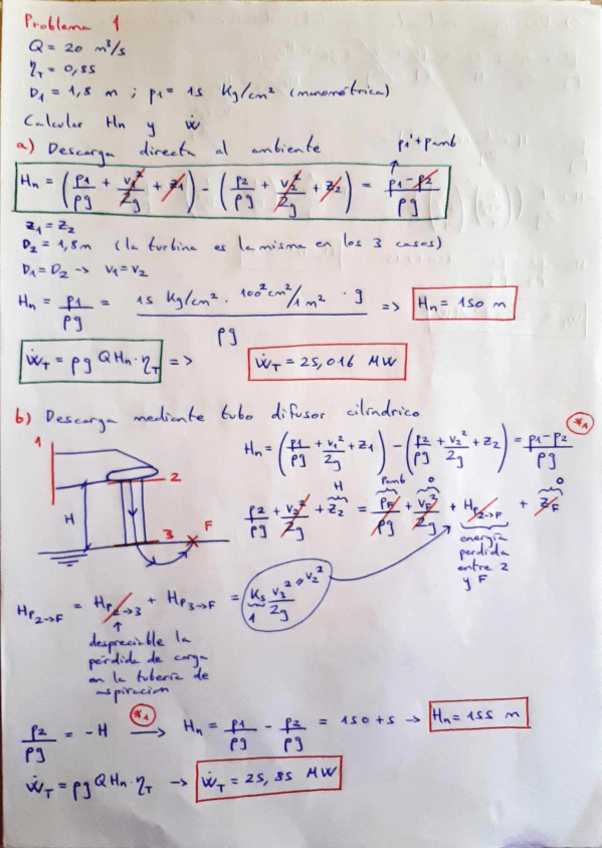 Problema 1
Q = 20 m³/s
η_T = 0,85
D1 = 1,8 m ; p1 = 15 Kg/cm² (manométrica)
Calcular Hn y Ẇ
a) Descarga directa al ambiente
p1' + pamb
Hn = (p1/ρg + v1²/2g + z1) - (p2/ρg + v2²/2g + z2) = p1-p2/ρg
z1 = z2
D2 = 1,8m (la turbina es la misma en los 3 casos)
D1 = D2 -> v1 = v2
Hn = p1/ρg = 15 Kg/cm² · 100² cm²/1m² · g / ρg => Hn = 150 m
Ẇ_T = ρg Q Hn · η_T => Ẇ_T = 25,016 MW
b) Descarga mediante tubo difusor cilíndrico
*1
1
Hn = (p1/ρg + v1²/2g + z1) - (p2/ρg + v2²/2g + z2) = p1-p2/ρg
2
H
3
F
H pamb 0 0
p2/ρg + v2²/2g + z2 = pF/ρg + vF²/2g + Hp2->F + zF
energía
perdida
entre 2
y F
Hp2->F = Hp2->3 + Hp3->F = Ks v3²/2g = v2²
1
despreciable la
pérdida de carga
en la tubería de
aspiracion
p2/ρg = -H *1 -> Hn = p1/ρg - p2/ρg = 150 + 5 -> Hn = 155 m
Ẇ_T = ρg Q Hn · η_T -> Ẇ_T = 25,85 MW